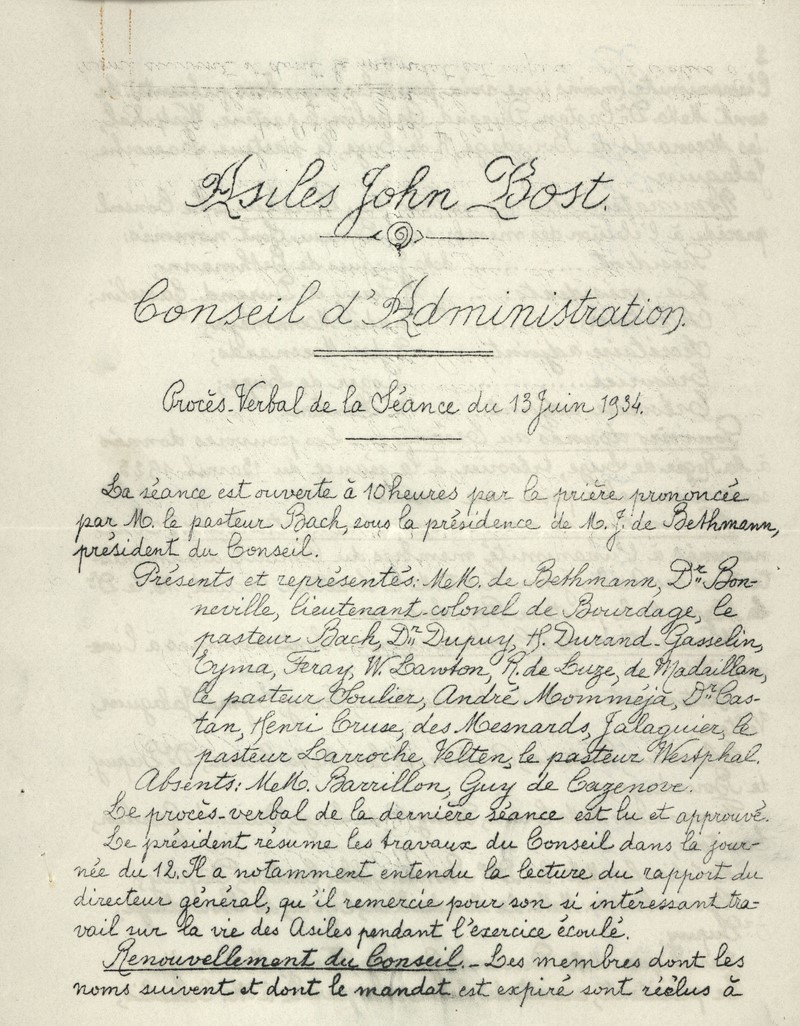 Asiles John Bost.
Conseil d'Administration.
Procès-Verbal de la Séance du 13 Juin 1934.
La séance est ouverte à 10 heures par la prière prononcée
par M. le pasteur Bach, sous la présidence de M. J. de Bethmann,
président du Conseil.
Présents et représentés: M.M. de Bethmann, Dr Bon-
neville, lieutenant-colonel de Bourdage, le
pasteur Bach, Dr Dupuy, H. Durand-Gasselin,
Eyma, Feray, W. Lawton, R. de Luze, de Madaillan,
le pasteur Soulier, André Momméja, Dr Cas-
tan, Henri Cruse, des Mesnards, Jalaguier, le
pasteur Larroche, Velten, le pasteur Westphal.
Absents: M.M. Barrillon, Guy de Cazenove.
Le procès-verbal de la dernière séance est lu et approuvé.
Le président résume les travaux du Conseil dans la jour-
née du 12. Il a notamment entendu la lecture du rapport du
directeur général, qu'il remercie pour son si intéressant tra-
vail sur la vie des Asiles pendant l'exercice écoulé.
Renouvellement du Conseil. - Les membres dont les
noms suivent et dont le mandat est expiré sont réélus à